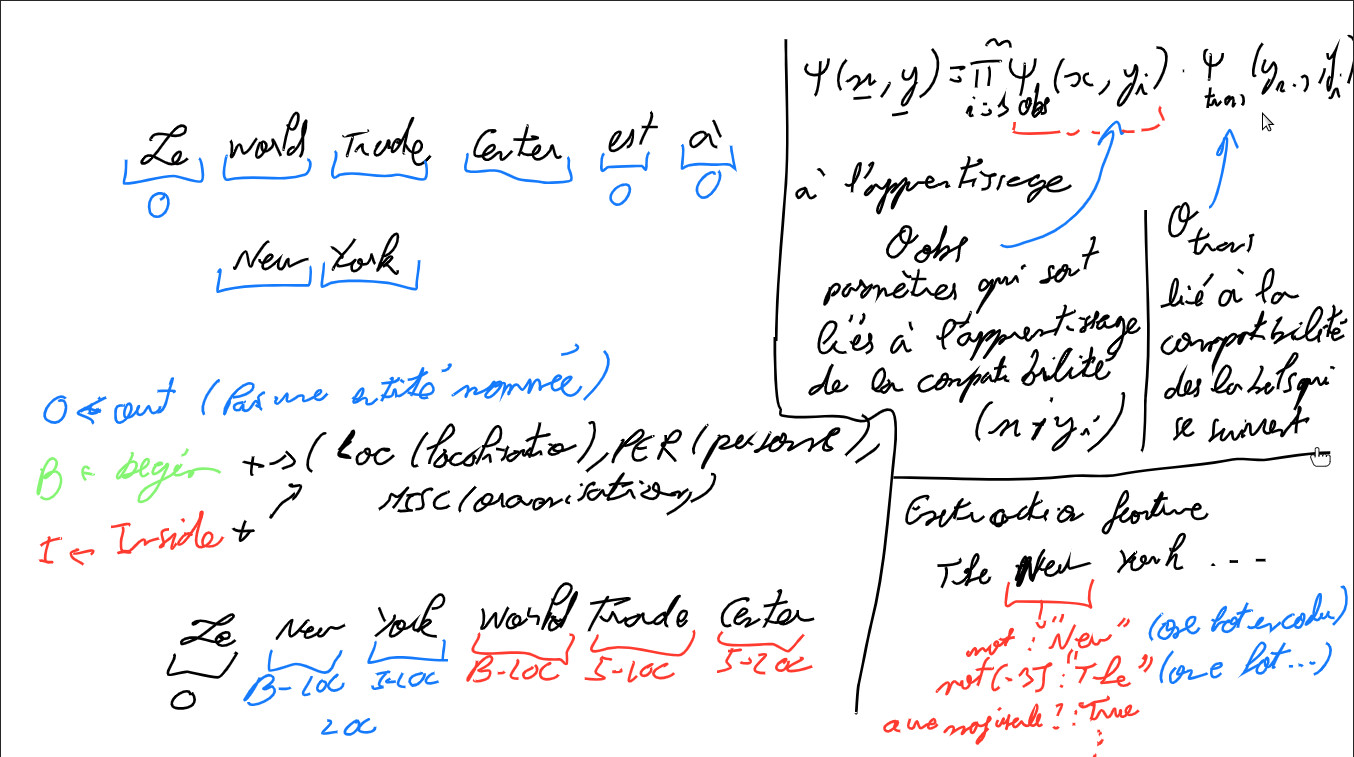 Le World Trade Center est à
O O O
New York
O ← out (Pas une entité nommée)
B ← begin + → (LOC (localisation), PER (personne),
MISC (organisation))
I ← Inside +
Le New York World Trade Center
O B-LOC I-LOC B-LOC I-LOC I-LOC
LOC
Ψ(x, y) = Π Ψ obs (x, y_i) · Ψ trans (y_{i-1}, y_i)
n
i=1
à l'apprentissage
θ obs
paramètres qui sont
liés à l'apprentissage
de la compatibilité
(x, y_i)
θ trans
lié à la
compatibilité
des labels qui
se suivent
Extraction feature
The New York ...
mot : "New" (one hot encoder)
mot[-1] : "The" (one hot ...)
a une majuscule ? : True